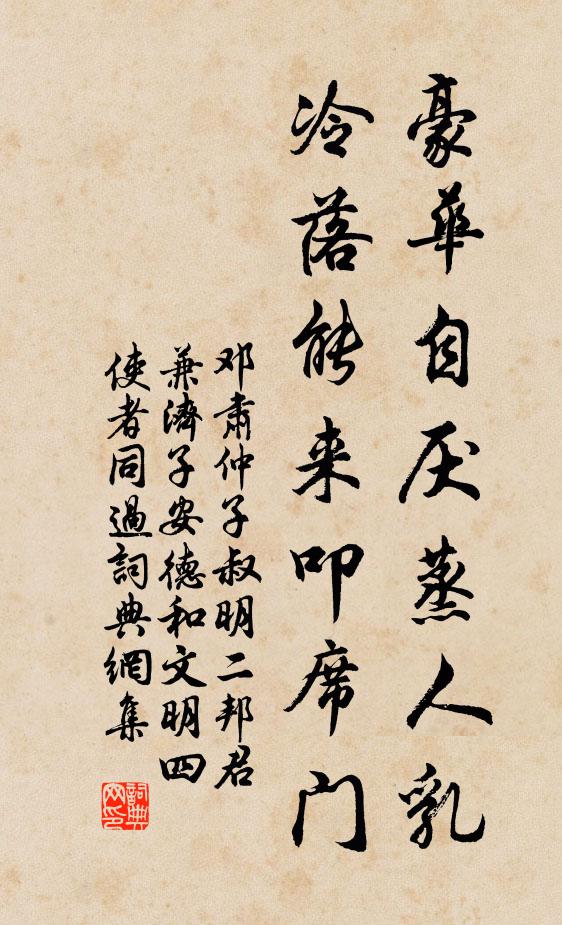 豪華自厌蒸人乳
冷落能来叩席门
邓肅仲子叔明二邦君
兼濟子安德和文明四
使者同過詞典網集
詞典
网印